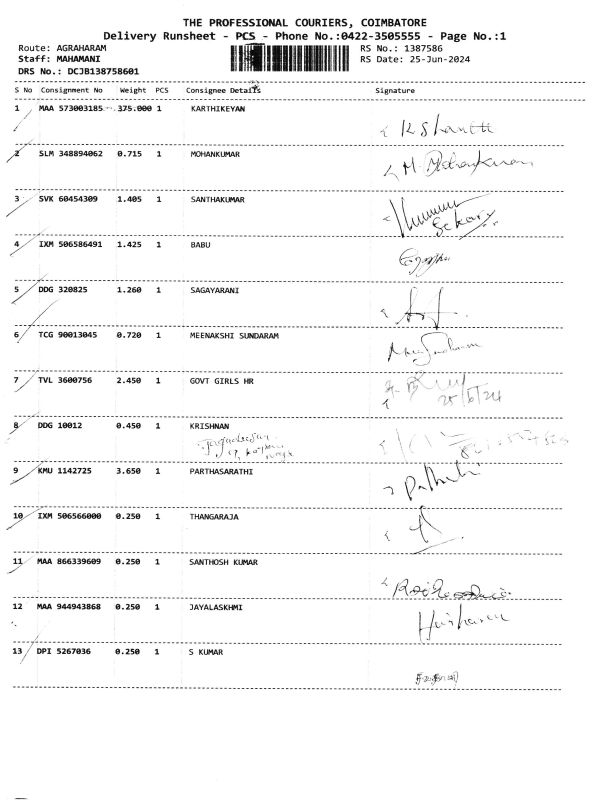 THE PROFESSIONAL COURIERS, COIMBATORE
Delivery Runsheet - PCS - Phone No.:0422-3505555 - Page No.:1
Route: AGRAHARAM RS No.: 1387586
Staff: MAHAMANI RS Date: 25-Jun-2024
DRS No.: DCJB138758601
S No Consignment No Weight PCS Consignee Details Signature
1 MAA 573003185 375.000 1 KARTHIKEYAN
K Shanthi
2 SLM 348894062 0.715 1 MOHANKUMAR
M. Mohankumar
3 SVK 60454309 1.405 1 SANTHAKUMAR
Sekar
4 IXM 506586491 1.425 1 BABU
5 DDG 320825 1.260 1 SAGAYARANI
6 TCG 90013045 0.720 1 MEENAKSHI SUNDARAM
7 TVL 3600756 2.450 1 GOVT GIRLS HR
25/6/24
8 DDG 10012 0.450 1 KRISHNAN
9 KMU 1142725 3.650 1 PARTHASARATHI
10 IXM 506566000 0.250 1 THANGARAJA
11 MAA 866339609 0.250 1 SANTHOSH KUMAR
12 MAA 944943868 0.250 1 JAYALASKHMI
13 DPI 5267036 0.250 1 S KUMAR